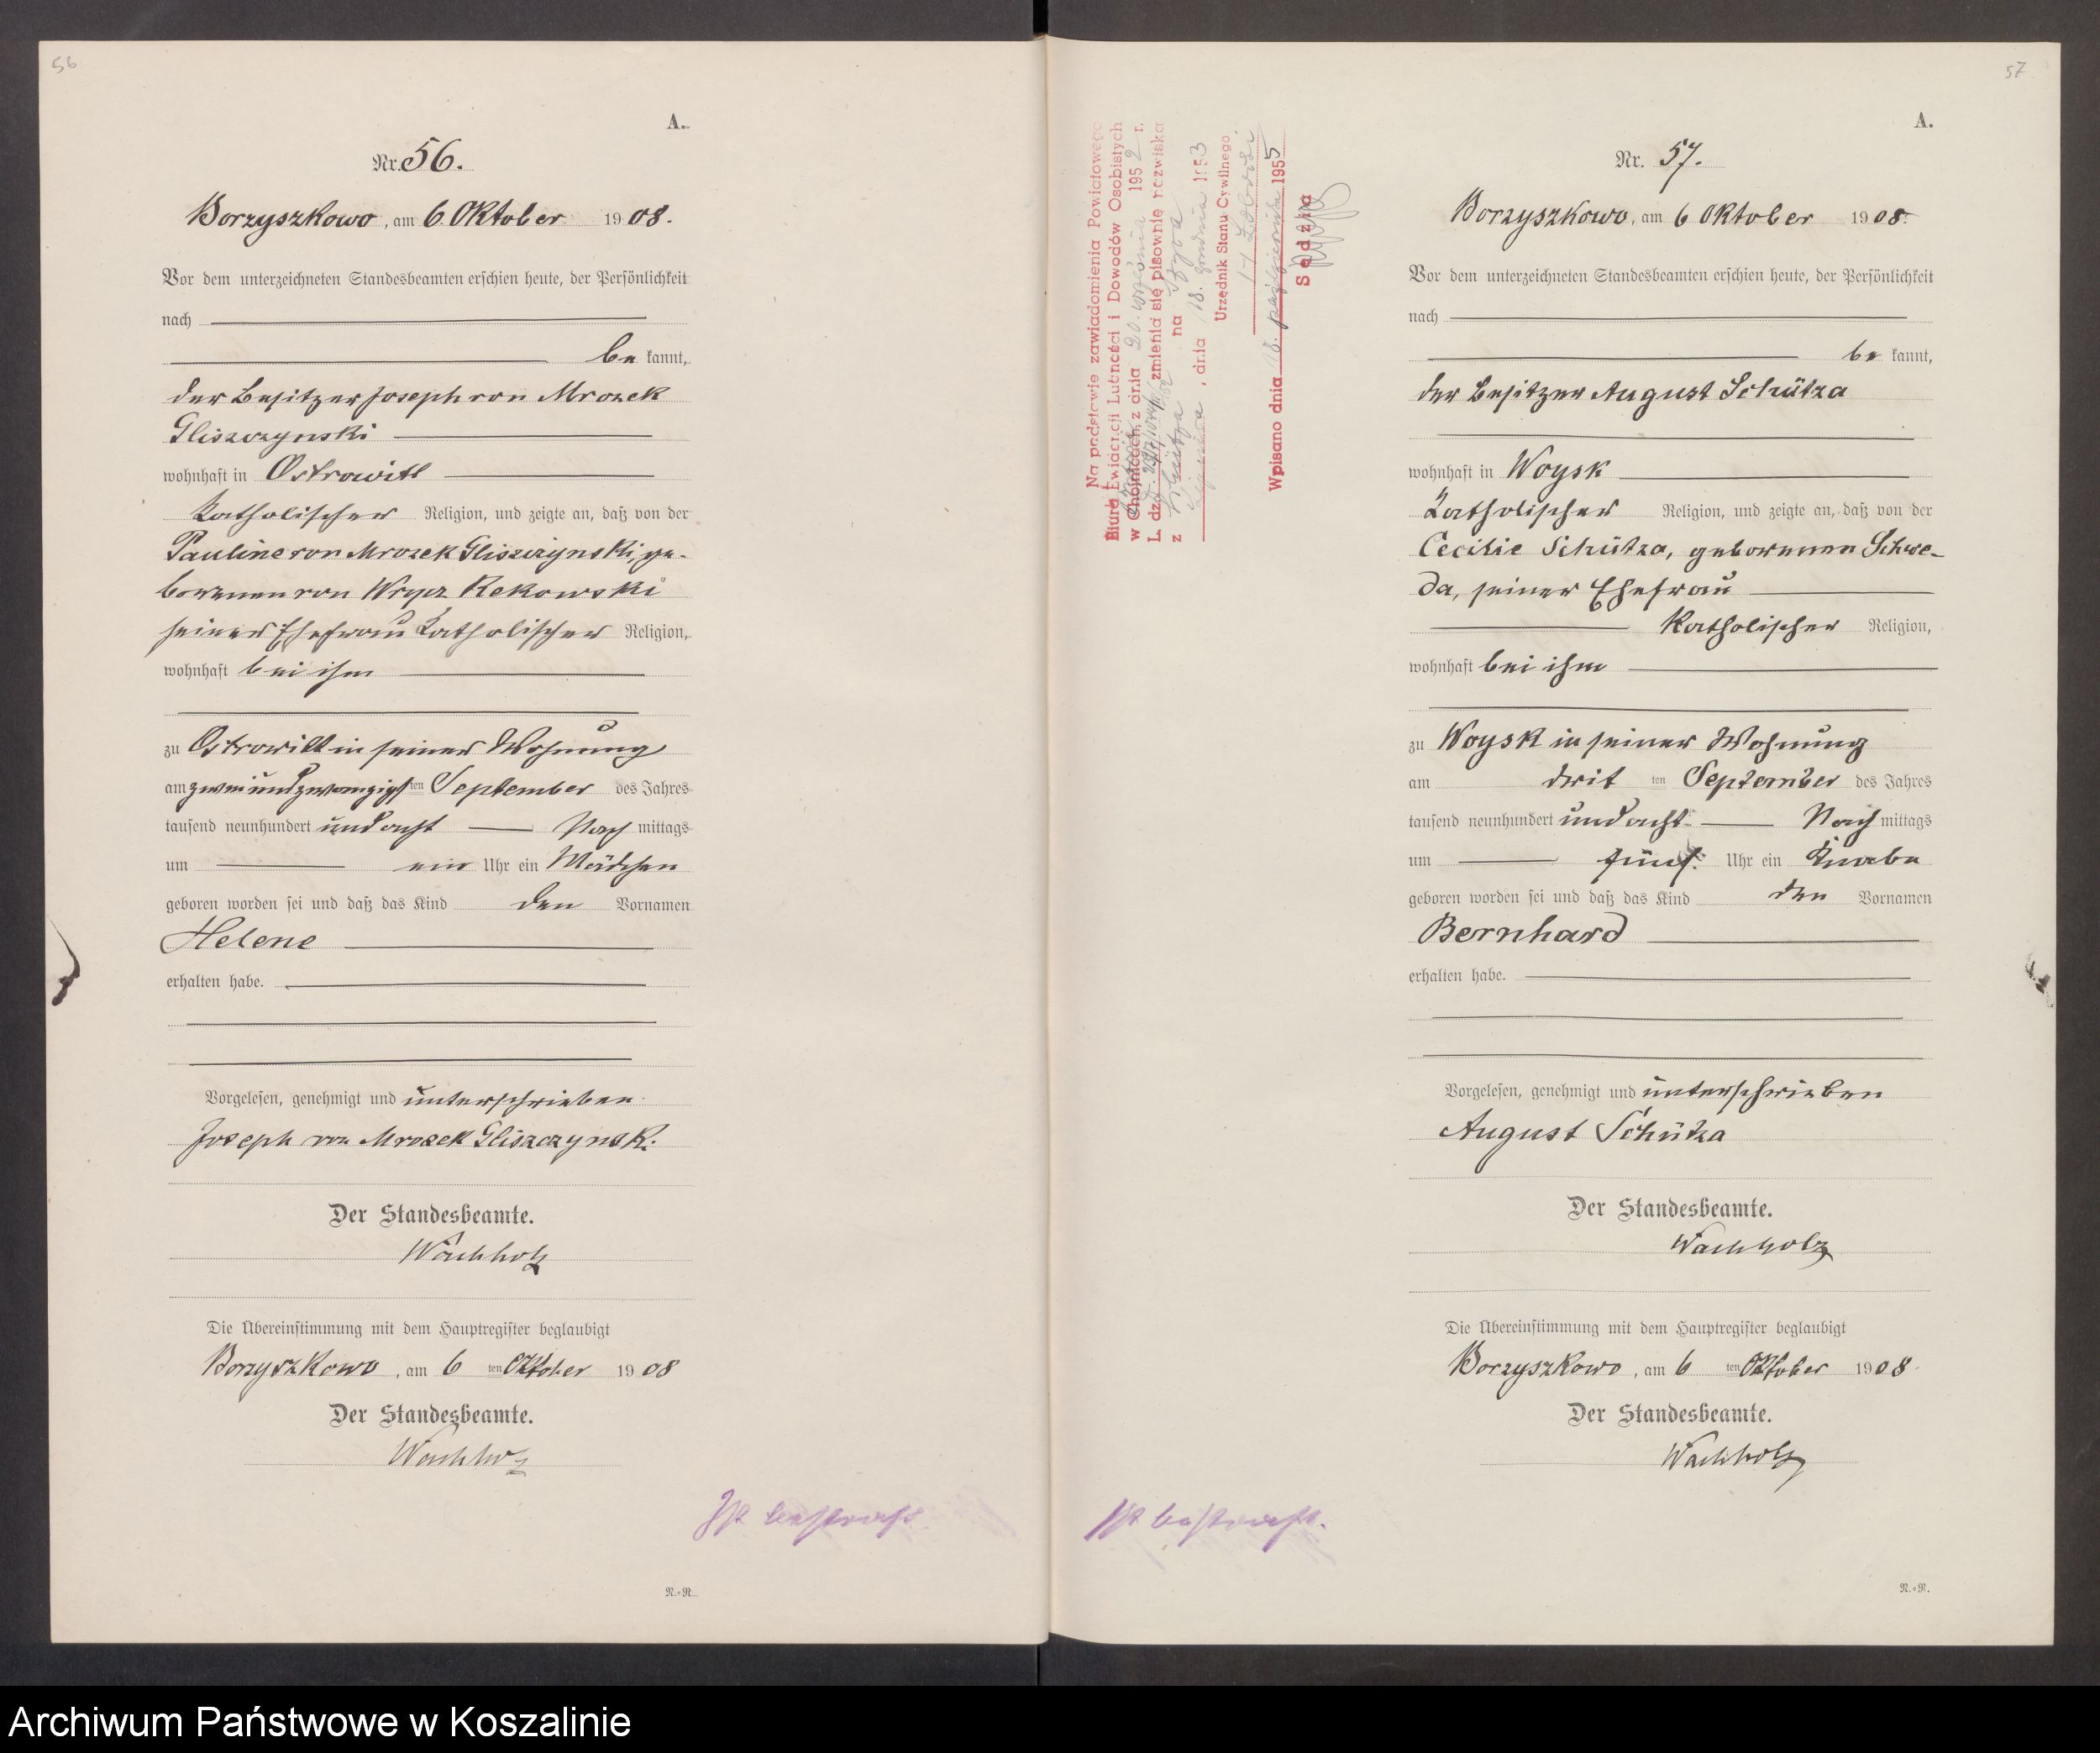 56
A.
Nr. 56.
Borzyszkowo, am 6 Oktober 1908.
Vor dem unterzeichneten Standesbeamten erschien heute, der Persönlichkeit
nach
be kannt,
der Besitzer Joseph von Mrozek
Gliszczynski
wohnhaft in Ostrowitt
katholischer Religion, und zeigte an, daß von der
Pauline von Mrozek Gliszczynski, ge-
borenen von Wrycz Rekowski
seiner Ehefrau katholischer Religion,
wohnhaft bei ihm
zu Ostrowitt in seiner Wohnung
am zweiundzwanzigsten September des Jahres
tausend neunhundert und acht Nach mittags
um ein Uhr ein Mädchen
geboren worden sei und daß das Kind den Vornamen
Helene
erhalten habe.
Vorgelesen, genehmigt und unterschrieben
Joseph von Mrozek Gliszczynski
Der Standesbeamte.
Wachholz
Die Übereinstimmung mit dem Hauptregister beglaubigt
Borzyszkowo, am 6 ten Oktober 1908
Der Standesbeamte.
Wachholz
N.-R.
57
A.
Nr. 57.
Borzyszkowo, am 6 Oktober 1908.
Vor dem unterzeichneten Standesbeamten erschien heute, der Persönlichkeit
nach
be kannt,
der Besitzer August Schütza
wohnhaft in Woysk
katholischer Religion, und zeigte an, daß von der
Cecilie Schütza, geborenen Schwe-
da, seiner Ehefrau
katholischer Religion,
wohnhaft bei ihm
zu Woysk in seiner Wohnung
am drit ten September des Jahres
tausend neunhundert und acht Nach mittags
um fünf Uhr ein Knabe
geboren worden sei und daß das Kind den Vornamen
Bernhard
erhalten habe.
Vorgelesen, genehmigt und unterschrieben
August Schütza
Der Standesbeamte.
Wachholz
Die Übereinstimmung mit dem Hauptregister beglaubigt
Borzyszkowo, am 6 ten Oktober 1908
Der Standesbeamte.
Wachholz
N.-R.
Na podstawie zawiadomienia Powiatowego
Biura Ewidencji Ludności i Dowodów Osobistych
w Chojnicach, z dnia 20. września 1952 r.
L. dz. zmienia się pisownię nazwiska
z Schütza na Szyca
, dnia 18. grudnia 1953
Urzędnik Stanu Cywilnego
Wpisano dnia 18. października 1955
Sędzia
Archiwum Państwowe w Koszalinie